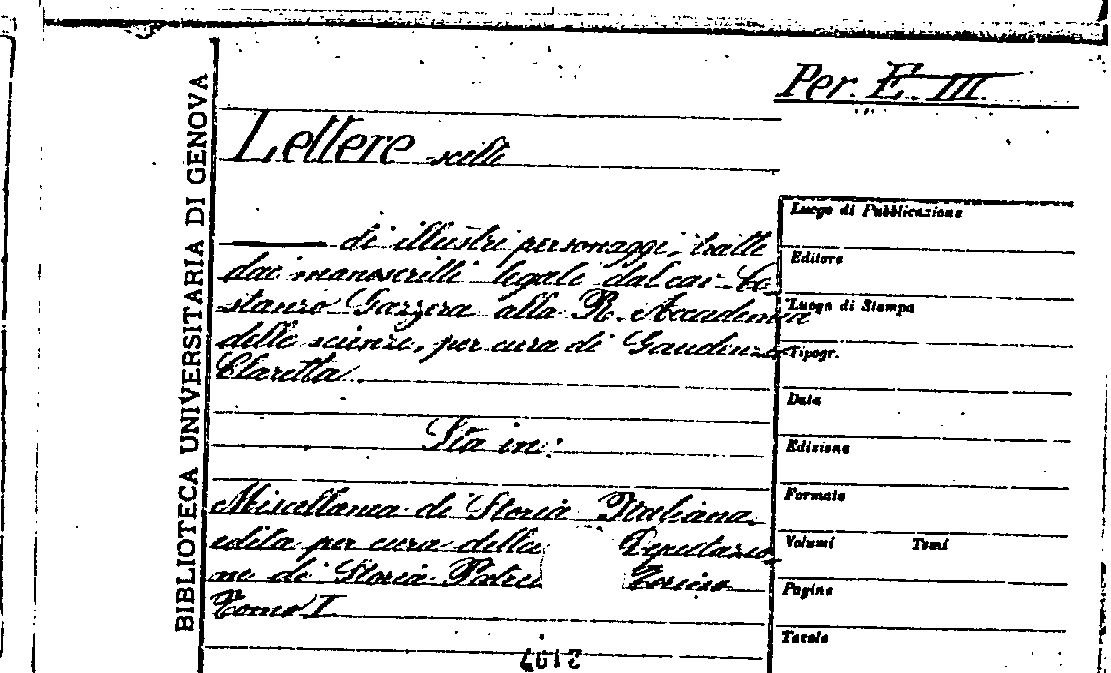 Per. E. III
Lettere scelte
di illustri personaggi, tratte
dai manoscritti legati dal cav. Co-
stanzo Gazzera alla R. Accademia
delle scienze, per cura di Gaudenzio
Claretta
Sta in:
Miscellanea di Storia Italiana
edita per cura della Deputazio
ne di Storia Patria Torino
Tomo I
BIBLIOTECA UNIVERSITARIA DI GENOVA
Luogo di Pubblicazione
Editore
Luogo di Stampa
Tipogr.
Data
Edizione
Formato
Volumi Tomi
Pagine
Tavole